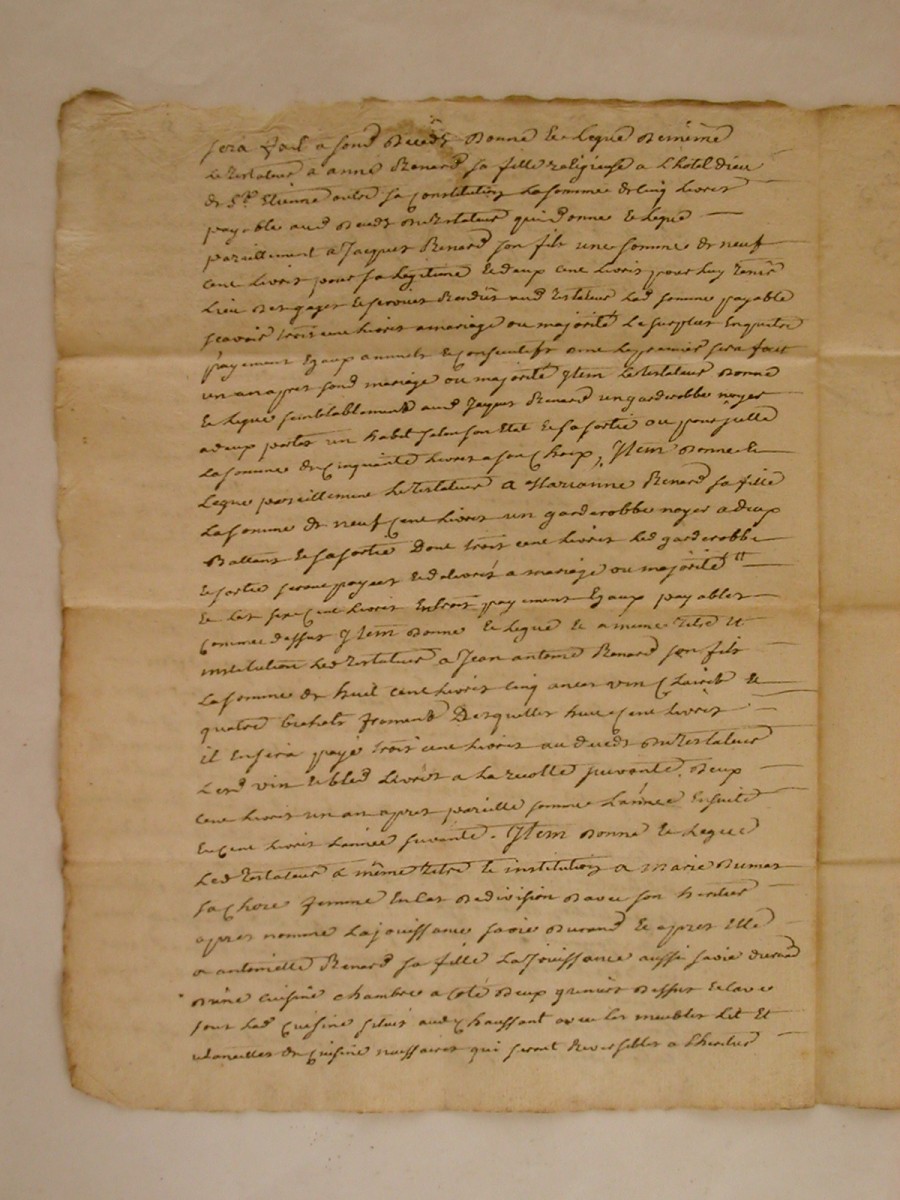 sera fait a sond deceds donne et legue de même
le testateur a anne Renard sa fille religieuse a l'hotel dieu
de St Etienne outre sa constitution la somme de cinq livres
payable aud deceds du testateur qui donne et legue
pareillement a Jacques Renard son fils une somme de neuf
cent livres pour sa legitime et deux cent livres pour luy tenir
lieu des gages et services rendus aud testateur lad somme payable
scavoir trois cent livres a mariage ou majorité le surplus en quatre
payement egaux annuels et consecutifs dont le premier sera fait
un an apres sond mariage ou majorité Item le testateur donne
et legue semblablement aud Jaques Renard un garderobbe noyer
a deux portes un habit selon son etat et sa sortie ou pour jcelle
la somme de cinquante livres a son choix, Item donne et
legue pareillement le testateur a Marianne Renard sa fille
la somme de neuf cent livres un garderobbe noyer a deux
battans et sa sortie dont trois cent livres led garderobbe
et sortie seront payés et delivrés a mariage ou majorité
et les six cent livres en trois payement egaux payables
comme dessus Item donne et legue et a meme titre et
institution led testateur a Jean antoine Renard son fils
la somme de huit cent livres cinq anées vin clairet et
quatre bichets froment desquelles huit cent livres
il en sera payé trois cent livres au deceds du testateur
lesd vin et bled livrés a la recolte suivante, deux
cent livres un an apres pareille somme l'année ensuite
et cent livres l'année suivante. Item donne et legue
led testateur a même titre et institution a marie Dumas
sa chere femme en cas de division d'avec son heritier
apres nommé la jouissance sa vie durand et apres elle
a antoinette Renard sa fille la jouissance aussi sa vie durand
d'une cuisine chambre a coté deux greniers dessus et cave
sous lad cuisine aud Chaussant avec les meubles lit et
utancilles de cuisine nessaires qui seront reversibles a l'heritier